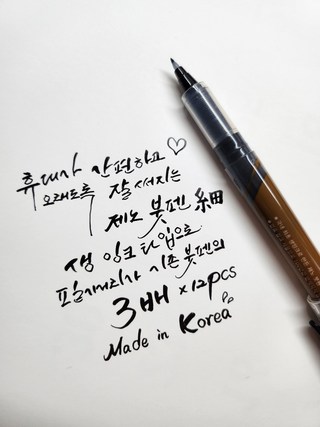 휴대가 간편하고♡
오래도록 잘 써지는
제노 붓펜 細
생 잉크 타입으로
필기거리가 기존 붓펜의
3배 ×12pcs
Made in Korea